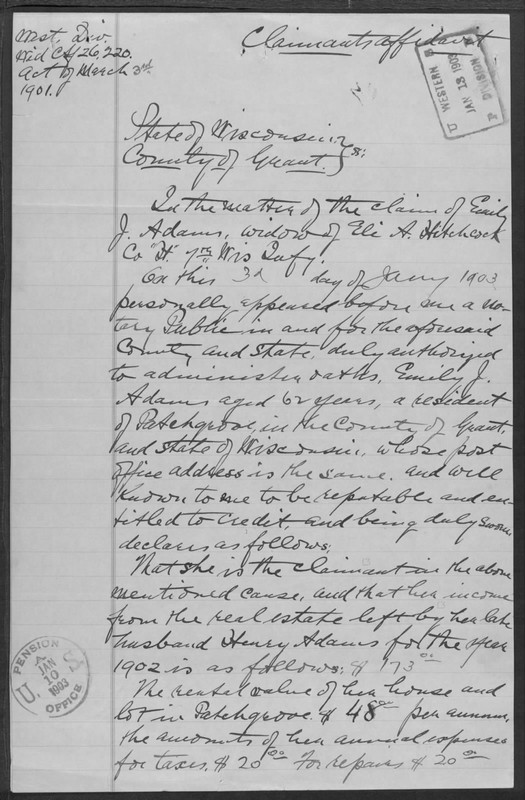 Mst. Div.
Wid Ctf 26,220.
Act of March 3rd
1901.
Claimants affidavit
U WESTERN P
JAN 13 1903
DIVISION
State of Wisconsin }
County of Grant. } ss:
In the matter of the claim of Emily
J. Adams, widow of Eli A. Hitchcock
Co "H" 7th Wis Infy.
On this 3d day of Jany 1903
personally appeared before me a no-
tary Public, in and for the aforesaid
County and State, duly authorized
to administer oaths, Emily J.
Adams aged 62 years, a resident
of Patchgrove, in the County of Grant,
and State of Wisconsin, whose post
office address is the same. and well
known to me to be reputable and en-
titled to credit, and being duly sworn,
declares as follows;
That she is the claimant in the above
mentioned cause, and that her income
from the real estate left by her late
husband Henry Adams for the year
1902 is as follows: $ 173 00
The rental value of her house and
lot in Patchgrove. $ 48 00 per annum,
the amounts of her annual expenses
for taxes. $ 20 00 For repairs $ 20 00
PENSION
JAN
10
1903
U. S.
OFFICE